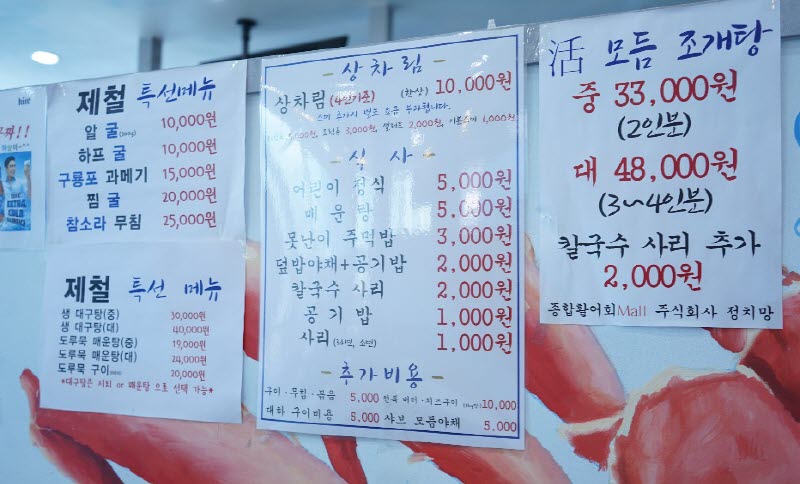 hite
제철 특선메뉴
알 굴 10,000원
하프 굴 10,000원
구룡포 과메기 15,000원
찜 굴 20,000원
참소라 무침 25,000원
제철 특선 메뉴
생 대구탕(중) 30,000원
생 대구탕(대) 40,000원
도루묵 매운탕(중) 19,000원
도루묵 매운탕(대) 24,000원
도루묵 구이 20,000원
*대구탕은 지리 or 매운탕 으로 선택 가능*
- 상차림 -
상차림(4인기준) (한상) 10,000원
추가시 별도 요금 부과됩니다.
5,000원, 3,000원, 샐러드 2,000원, 1,000원
- 식 사 -
어린이 정식 5,000원
매 운 탕 5,000원
못난이 주먹밥 3,000원
덮밥야채+공기밥 2,000원
칼국수 사리 2,000원
공 기 밥 1,000원
사리(라면, 소면) 1,000원
- 추가비용 -
구이·무침·볶음 5,000 버터·치즈구이 10,000
대하 구이비용 5,000 샤브 모듬야채 5,000
活 모듬 조개탕
중 33,000원
(2인분)
대 48,000원
(3~4인분)
칼국수 사리 추가
2,000원
종합활어회Mall 주식회사 정치망